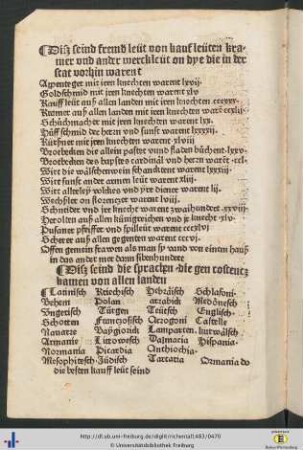 ¶ Diß seind fremd leüt von kauf leüten kra-
mer vnd ander werckleüt on dye die in der
stat vorhin warent
Appenteger mit iren knechten warent lxvij.
Goldschmid mit iren knechten warent xlv
Kauff leüt auß allen landen mit iren knechten
Kramer auß allen landen mit iren knechten warent
Schüchmacher mit iren knechten warent lxx.
Hüffschmid der herrn vnd sunst warent lxxxxij.
Kürßner mit iren knechten warent xlviij
Brotbecken die allein pastet vnd fladen bůchent lxxv.
Brotbecken des bapstes cardinäl vnd herrn warent ccl.
Wirt die wälschenwein schancktent warent lxxxiij.
Wirt sunst ander armen leüt warent xliij.
Wirt allerley volckes vnd yr diener warent lij.
Wechßler on florentzer warent
Schneider vnd ire knecht warent zwaihundert
Herolten auß allen künigreichen vnd ir knecht xlv
Pusaner pfeiffer vnd spilleüt warent
Scherer auß allen gegenten warent
Offen gemein frawen als man sy vand von einem hauß
in das ander mer dann sibenhundert
¶ Diß seind die sprachen die gen costentz
kamen von allen landen
¶ Latinisch Kriechisch Hebräisch Schlafoni-
Behem Polan arzabich Medönesch
Vngerisch Türgen Teütsch Englisch
Schotten Franczosisch Arrogoni Castelle
Nauarre Lamparten kurwälsch
Armanie Littowisch Dalmacia Hispania
Normania Picardia Anthiochia
Mesopithesch Jüdisch Tartaria Ormania do
die besten kauff leüt seind
http://dl.ub.uni-freiburg.de/diglit/richental1483/0470
© Universitätsbibliothek Freiburg